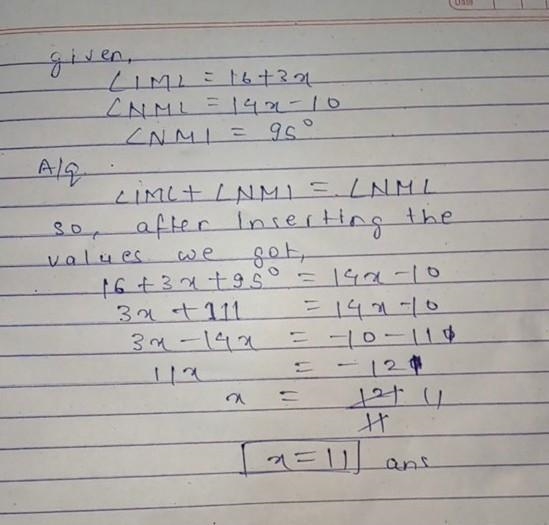 Date
given,
∠IML = 16+3x
∠NML = 14x-10
∠NMI = 95°
A/q
∠IML+ ∠NMI = ∠NML
so, after Inserting the
values we got,
16+3x+95° = 14x-10
3x+111 = 14x-10
3x-14x = -10-111
11x = -121
x = 121 11
11
x=11 ans